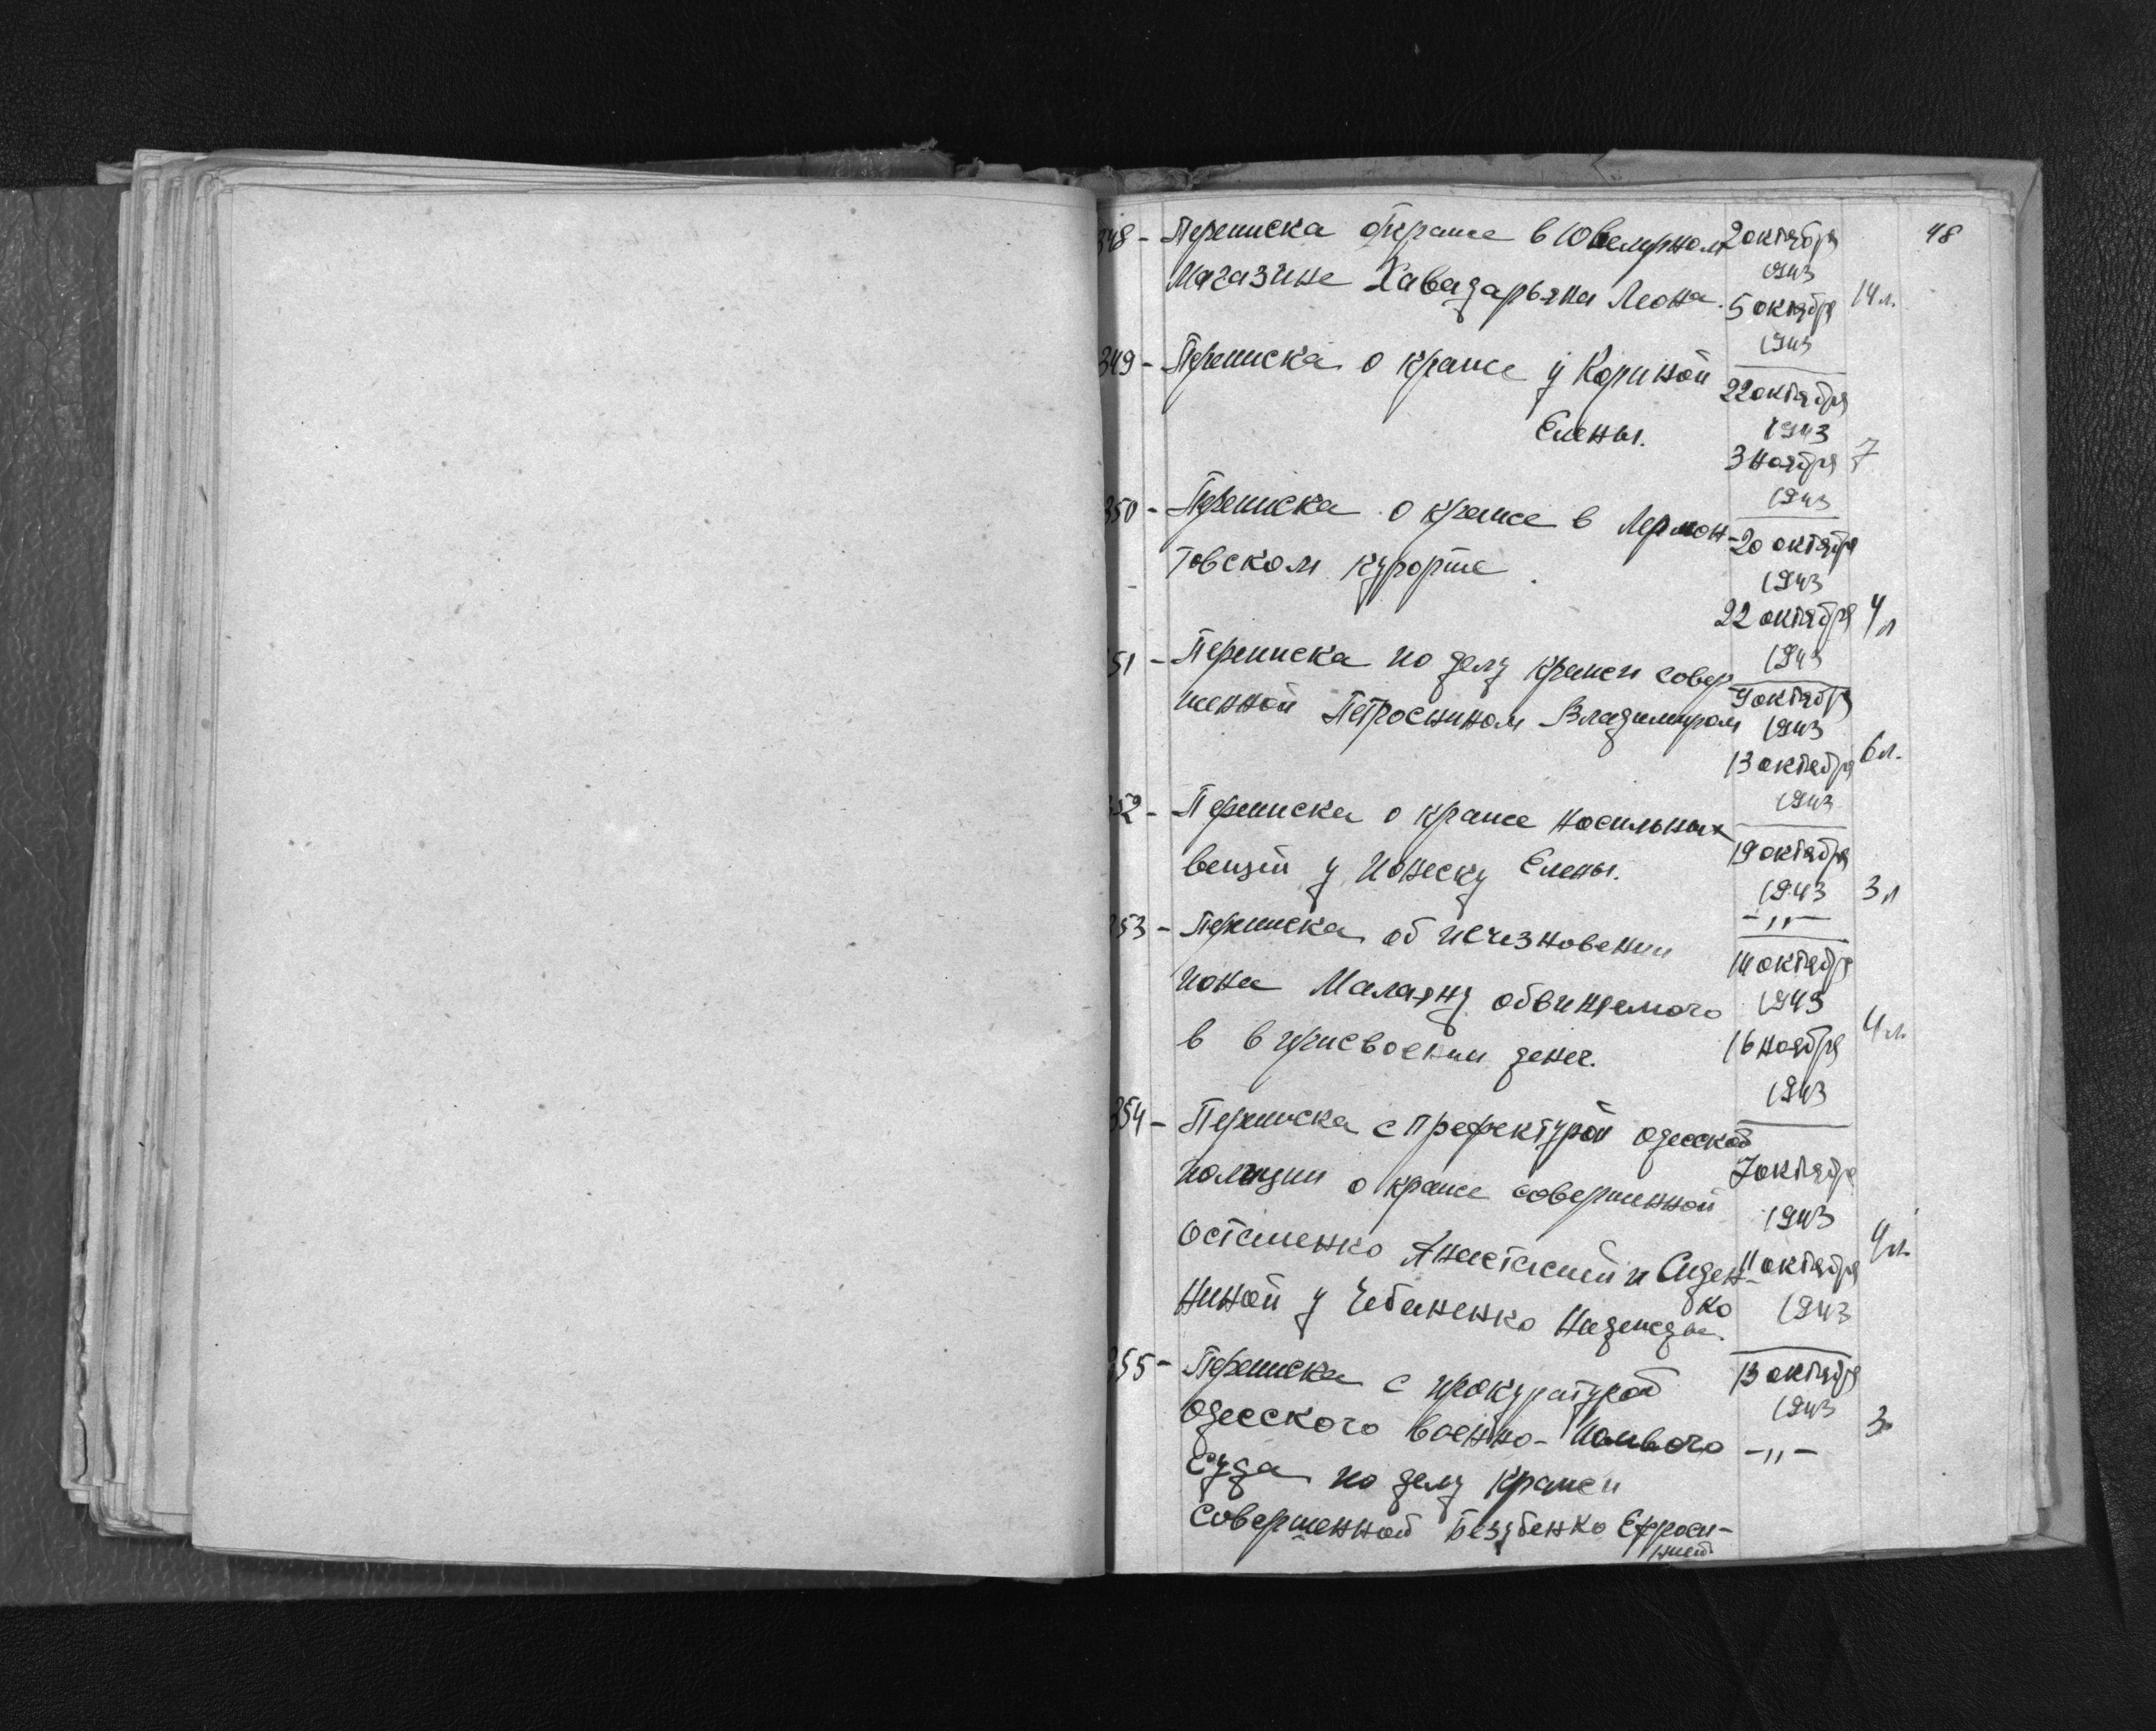 48
348 - Переписка о краже в Ювелирном 2 октября
1943
Магазине Хавадарьяна Леона. 5 октября 14 л.
1943
349 - Переписка о краже у Кориной 22 октября
Елены. 1943
3 ноября 7
1943
350 - Переписка о краже в Лермон- 20 октября
товском курорте. 1943
22 октября 4 л
1943
51 - Переписка по делу кражи совер 9 октября
шенной Петроснином Владимиром 1943
13 октября 6 л.
1943
352 - Переписка о краже носильных 19 октября
вещей у Ионеску Елены. 1943 3 л
-„-
353 - Переписка об исчезновении 14 октября
Иона Малаяну обвиняемого 1943
в в присвоении денег. 16 ноября 4 л.
1943
354 - Переписка с префектурой одесской
полиции о краже совершенной 7 октября
1943
Осташенко Анастасией и Сиден- 11 октября 4 л.
ко
Ниной у Чебаненко Надежды. 1943
355 - Переписка с прокуратурой 13 октября
1943
Одесского военно-полевого -„- 3
Суда по делу кражи
Совершенной Беззубенко Ефроси-
нией